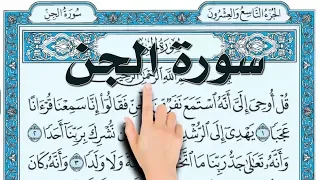 الجزء التاسع والعشرون سورة الجن
سورة الجن
ٱللَّهِ ٱلرَّحْمَٰنِ ٱلرَّحِيمِ
قُلْ أُوحِيَ إِلَيَّ أَنَّهُ ٱسْتَمَعَ نَفَرٌ فَقَالُوٓا۟ إِنَّا سَمِعْنَا قُرْءَانًا
عَجَبًا ١ يَهْدِىٓ إِلَى ٱلرُّشْدِ نُّشْرِكَ بِرَبِّنَآ أَحَدًا ٢
وَأَنَّهُۥ تَعَٰلَىٰ جَدُّ رَبِّنَا مَا ٱتَّخَذَ وَلَا وَلَدًا ٣ وَأَنَّهُۥ كَانَ